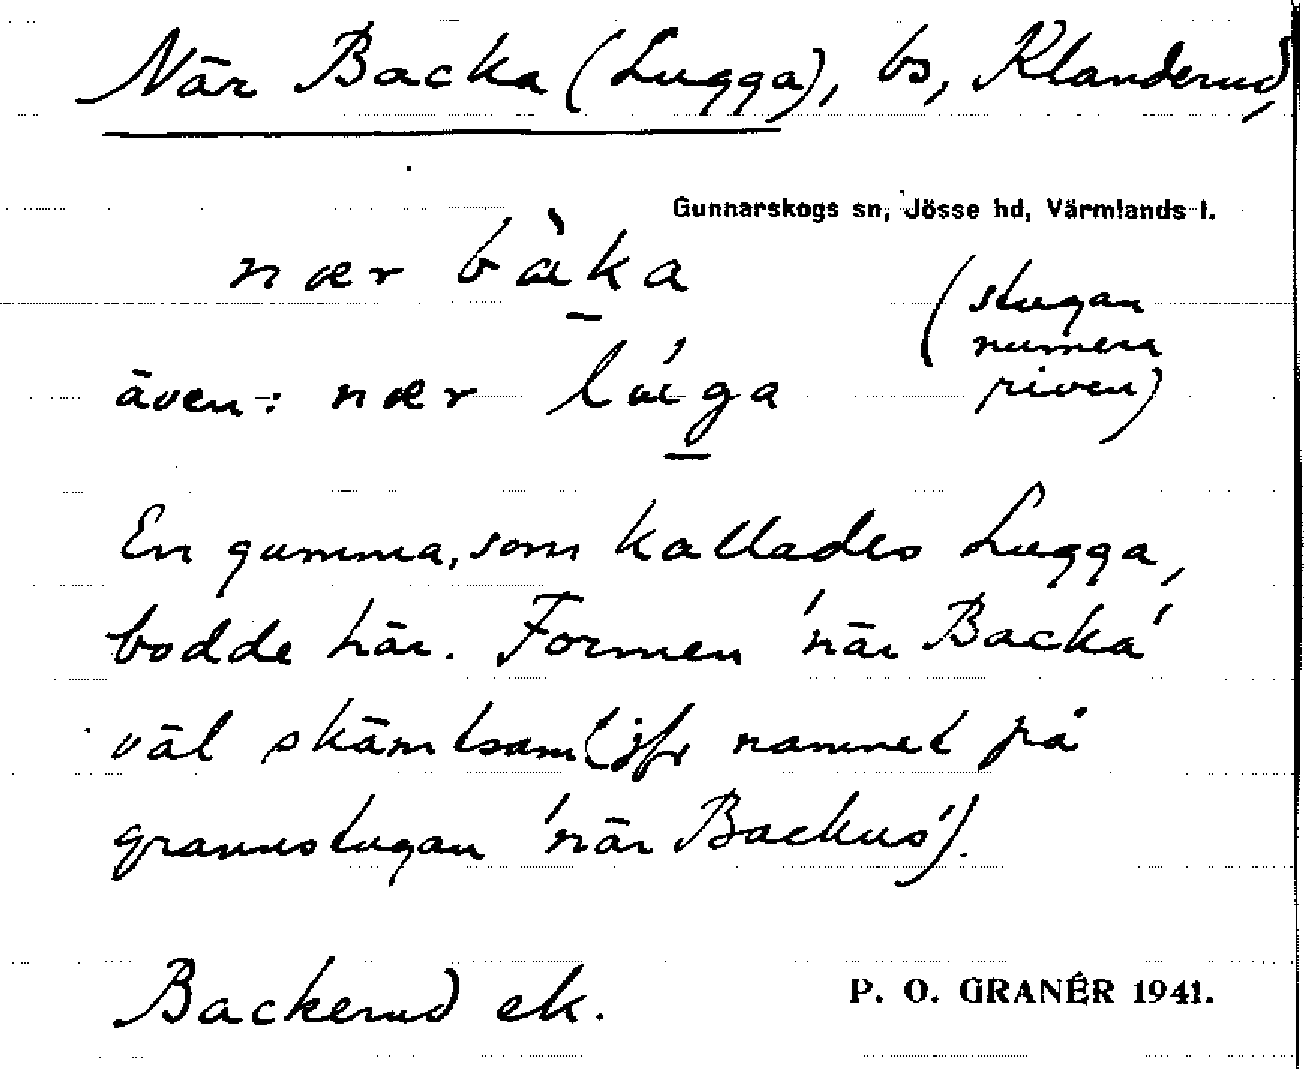 När Backa (Lugga), bs, Klanderud,
Gunnarskogs sn, Jösse hd, Värmlands l.
nær bàka
(stugan
numera
riven)
även: nær
En gumma, som kallades Lugga,
bodde här. Formen 'när Backa'
väl skämtsam (jfr namnet på
grannstugan 'när Backus').
Backerud ek.
P. O. GRANÉR 1941.